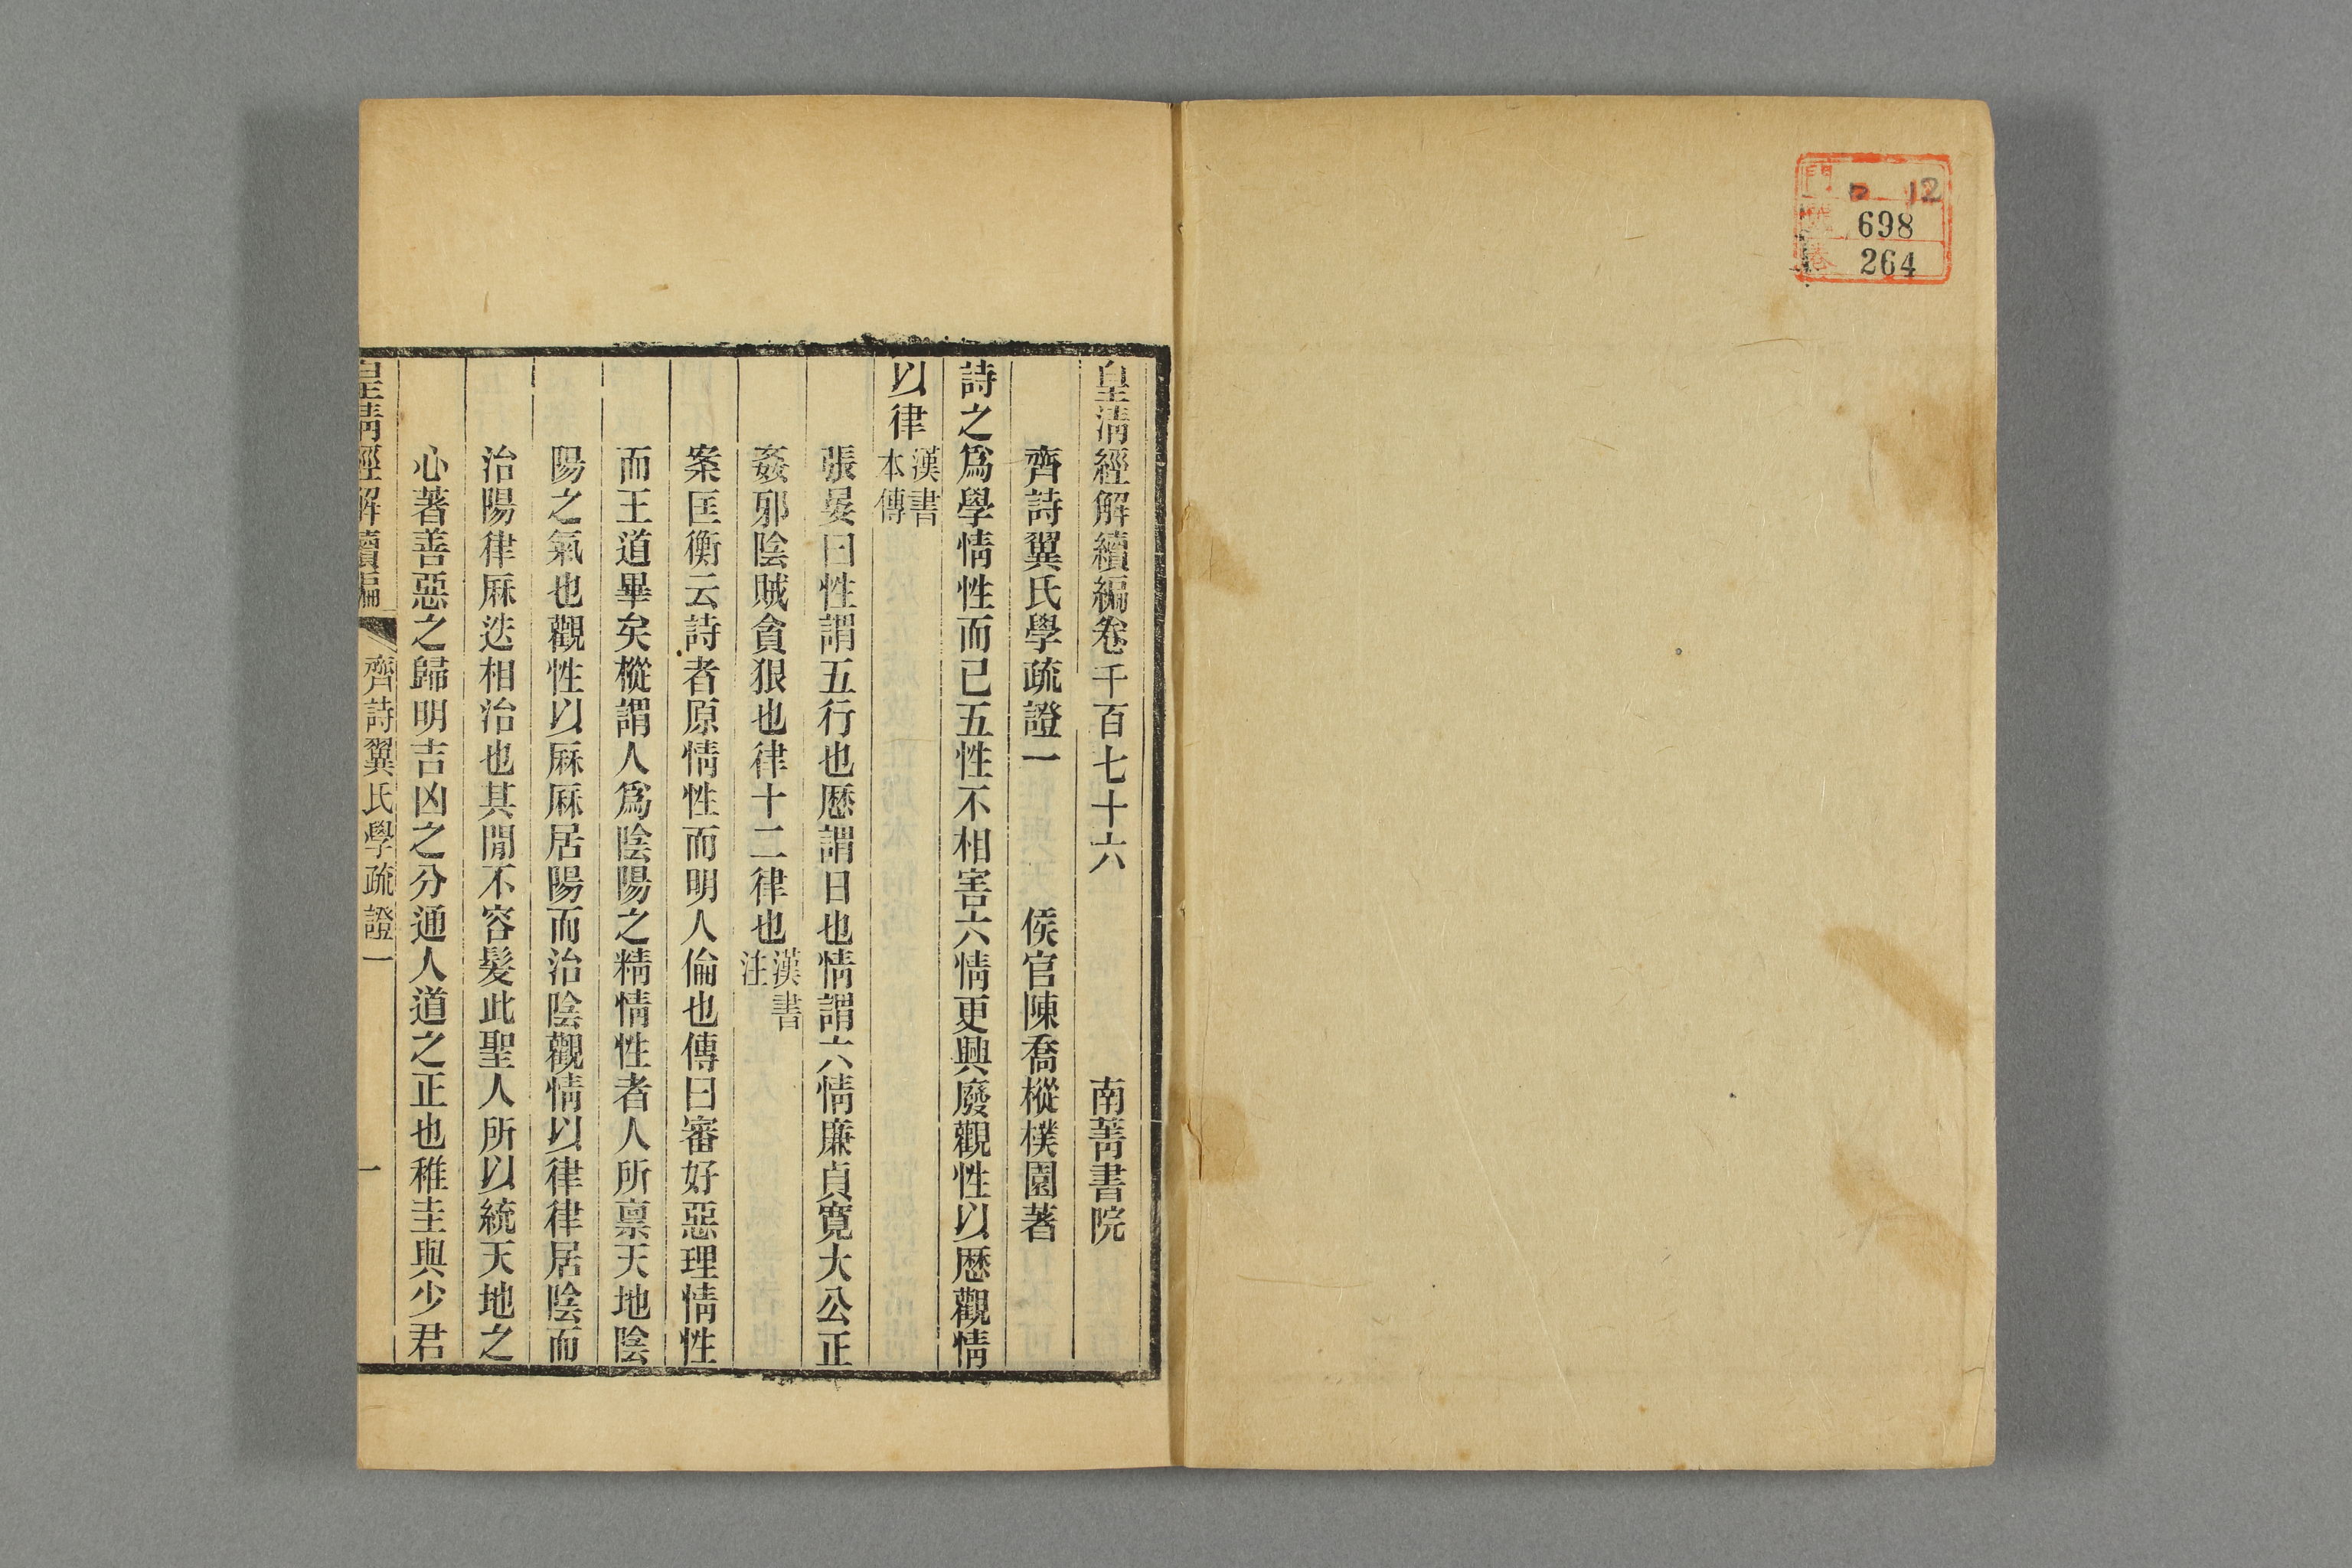 門 ロ 12
號 698
卷 264
皇淸經解續編卷千百七十六 南菁書院
齊詩翼氏學疏證一 侯官陳喬樅樸園著
詩之爲學情性而已五性不相害六情更興廢觀性以歷觀情
以律漢書本傳
張晏曰性謂五行也歷謂日也情謂六情廉貞寬大公正
姦邪陰賊貪狠也律十二律也漢書注
案匡衡云詩者原情性而明人倫也傳曰審好惡理情性
而王道畢矣樅謂人爲陰陽之精情性者人所禀天地陰
陽之氣也觀性以厤厤居陽而治陰觀情以律律居陰而
治陽律厤迭相治也其閒不容髮此聖人所以統天地之
心著善惡之歸明吉凶之分通人道之正也稚圭與少君
皇淸經解續編 齊詩翼氏學疏證一 一